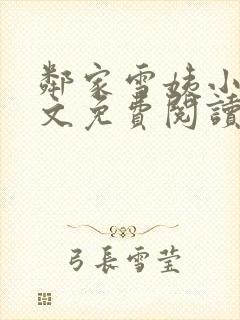 鄰家雪姨小
文免費閱讀
弓長雪莹